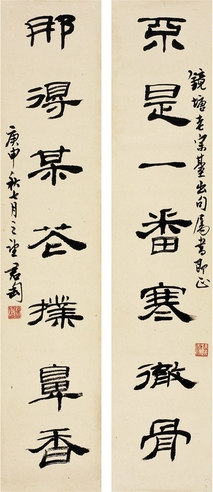 是一番寒徹骨
鏡塘老宗臺出句屬書即正
那得某花撲鼻香
庚申秋七月之望君匋